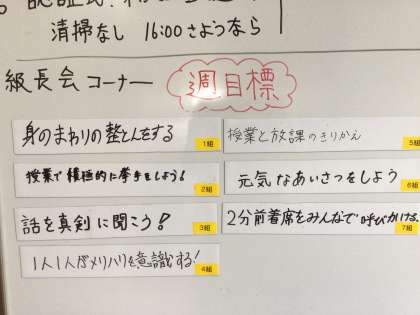 清掃なし 16:00さようなら
級長会コーナー
週目標
身のまわりの整とんをする
1組
授業で積極的に挙手をしよう!
2組
話を真剣に聞こう!
3組
1人1人がメリハリを意識する!
4組
授業と放課のきりかえ
5組
元気なあいさつをしよう
6組
2分前着席をみんなで呼びかける。
7組